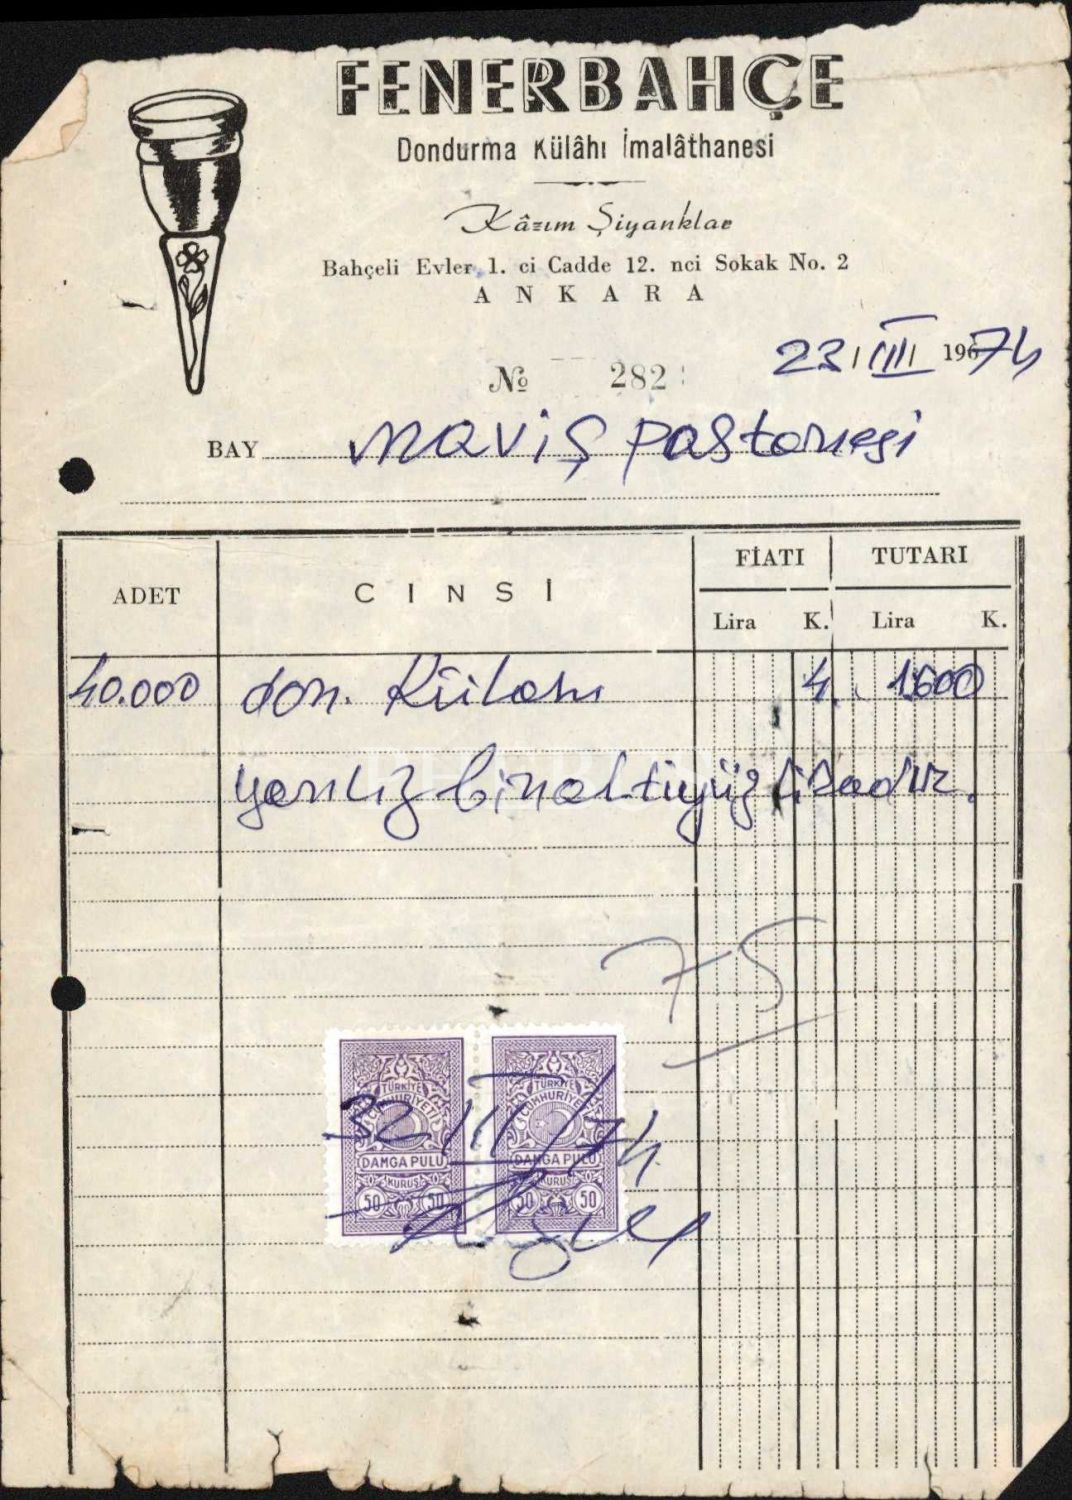 FENERBAHÇE
Dondurma Külâhı İmalâthanesi
Kâzım Şiyanklar
Bahçeli Evler 1. ci Cadde 12. nci Sokak No. 2
ANKARA
23 / III 196 74
No 282
BAY maviş pastanesi
ADET CİNSİ FİATI TUTARI
Lira K. Lira K.
40.000 don. Külahı 4. 1600
yanlız binaltıyüz liradır.
75
TÜRKİYE CUMHURİYETİ TÜRKİYE CUMHURİYETİ
32 / III / 74
DAMGA PULU DAMGA PULU
KURUŞ KURUŞ
50 50 50 50